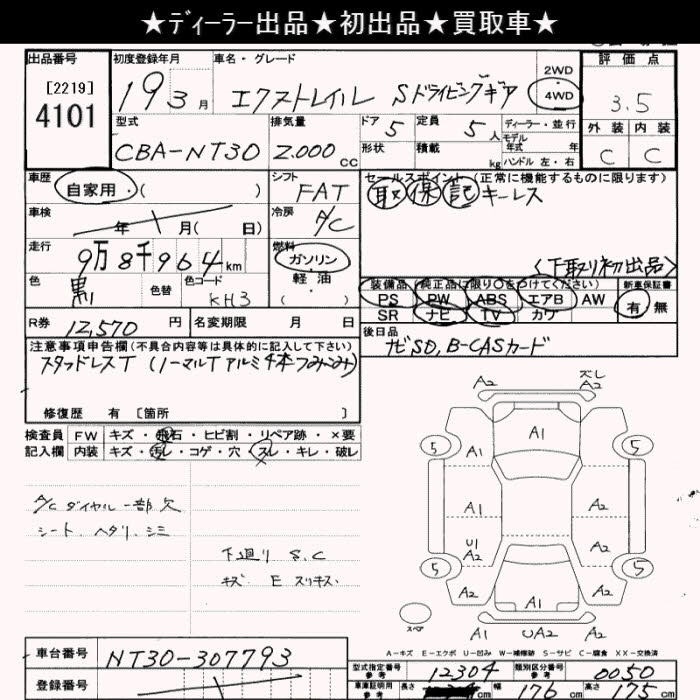 ★ディーラー出品★初出品★買取車★
出品番号
[2219]
4101
初度登録年月
19 3 月
車名・グレード
エクストレイル Sドライビングギア
2WD
・
4WD
評価点
3.5
外装 内装
C C
型式
CBA-NT30
排気量
2.000 cc
ドア 5
形状
定員 5 人
積載 kg
ディーラー・並行
モデル
年式 年
ハンドル 左・右
車歴
自家用・( )
シフト
FAT
セールスポイント (正常に機能するものに限ります)
取 保 記 キーレス
車検
年 月( 日)
冷房
A/C
走行
9万8千964km
燃料
ガソリン
・
軽油
・
( )
〈下取り初出品〉
色
黒
色替
色コード
KH3
装備品 (純正品に限り○をつけてください)
PS PW ABS エアB AW
SR ナビ TV カワ
新車保証書
有 無
R券 12,570 円
名変期限 月 日
後日品
ナビSD, B-CASカード
注意事項申告欄(不具合内容等は具体的に記入して下さい)
スタッドレスT (ノーマルTアルミ4本つみこみ)
修復歴 有 [箇所 ]
検査員 FW キズ・飛石・ヒビ割・リペア跡・×要
記入欄 内装 キズ・汚レ・コゲ・穴・スレ・キレ・破レ
A/Cダイヤル一部欠
シート、ヘタリ、シミ
下廻り S.C
キズ E スリキズ、
ズレ
A2 A2
A1
5 5
A1 A2
A1 A2
U1
A2 A2
5 5
A2 A2
A1
スペア
A2 UA2 A2
A-キズ E-エクボ U-凹み W-補修跡 S-サビ C-腐食 XX-交換済
車台番号
NT30-307793
登録番号
型式指定番号
参考
12304
類別区分番号
参考
0050
車庫証明用
参考
長さ
幅
176
高さ
175 cm